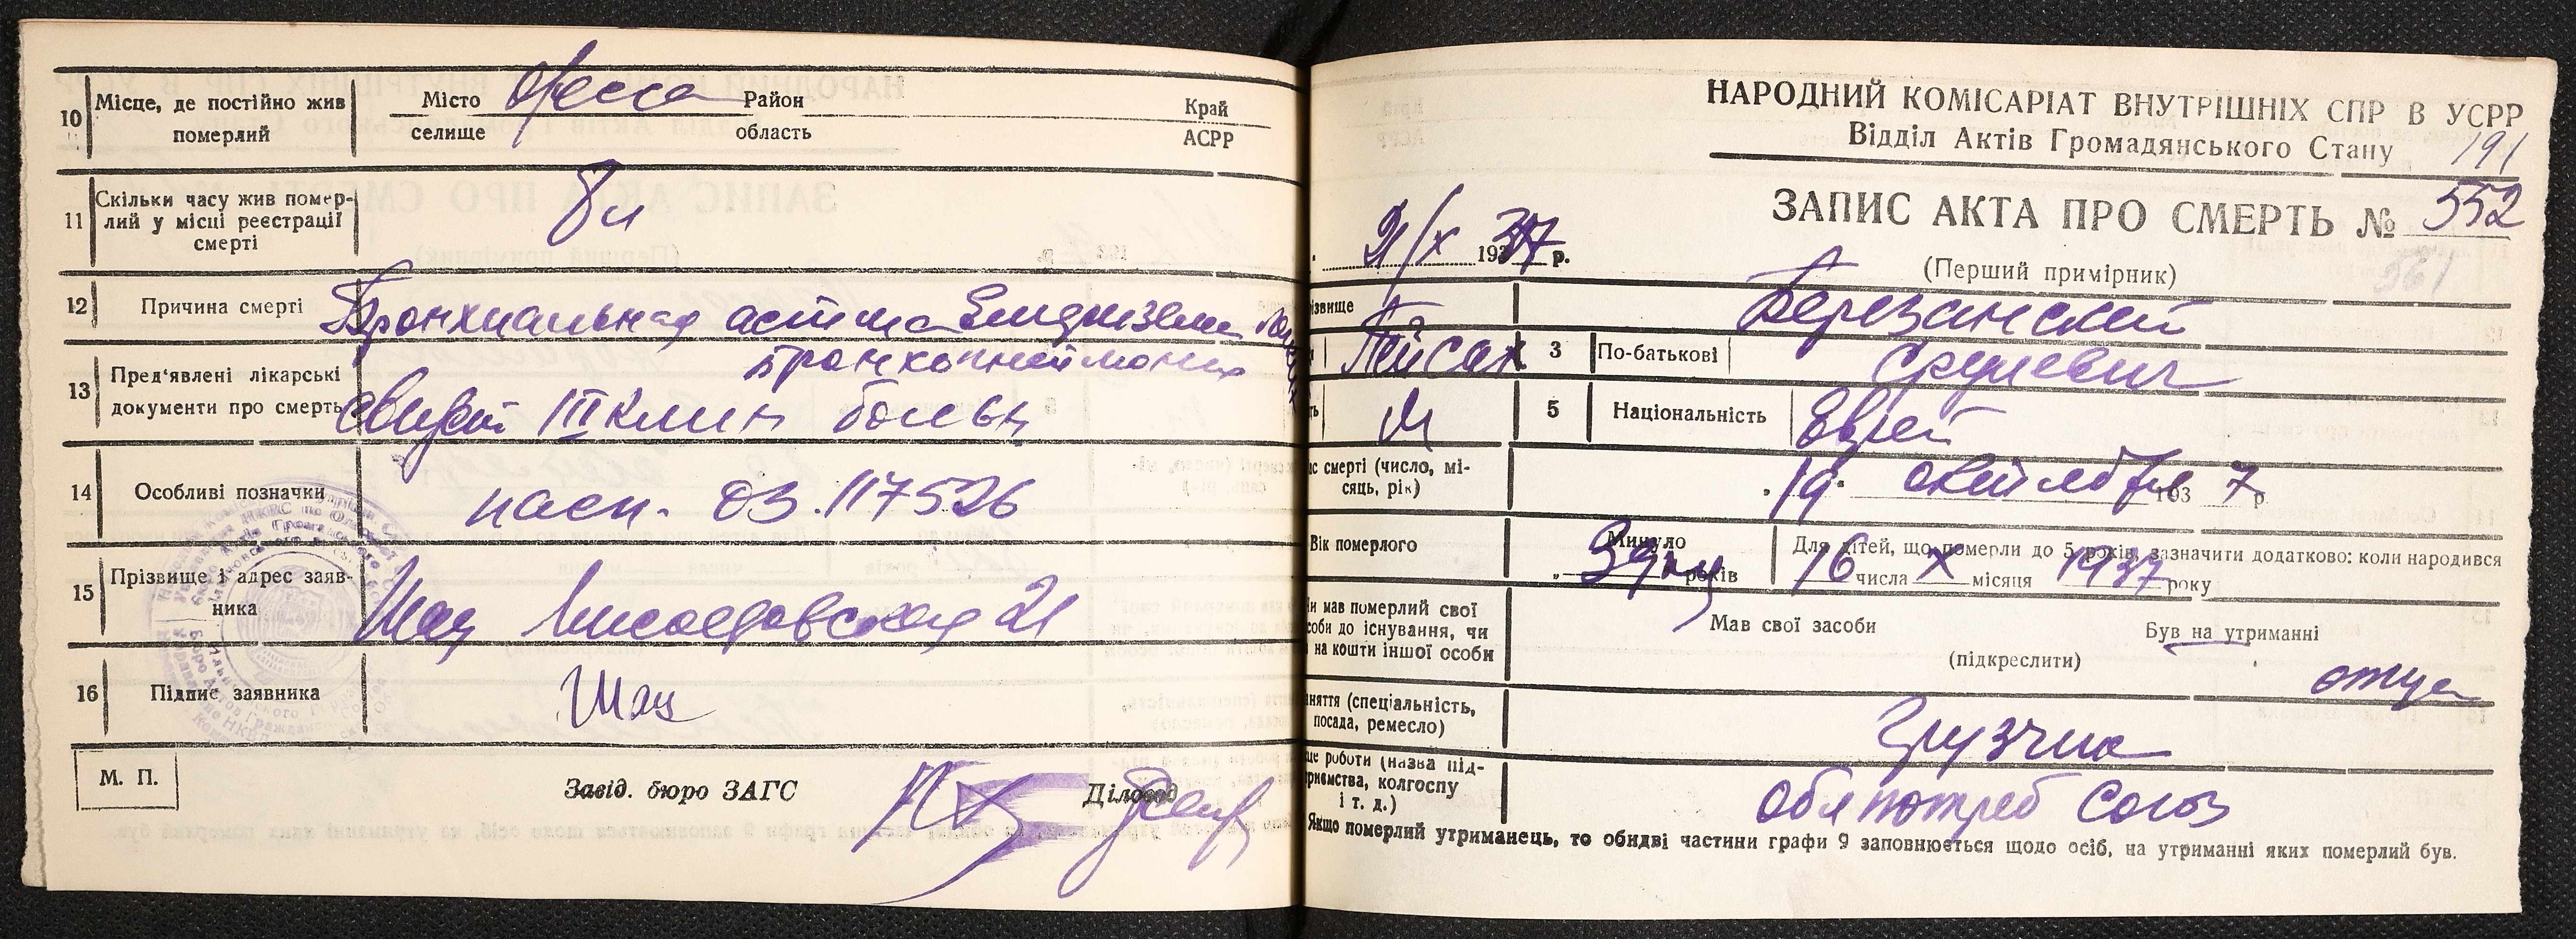 10 Місце, де постійно жив померлий
Місто Одесса Район Край
селище область АСРР
11 Скільки часу жив помер-
лий у місці реєстрації
смерті
12 Причина смерті Бронхиальная астма
бронхопнеймония
13 Пред'явлені лікарські
документи про смерть
III клин больн
14 Особливі позначки
пасп. 03.117526
15 Прізвище і адрес заяв-
ника
Шац 21
16 Підпис заявника Шац
М. П.
Завід. бюро ЗАГС Діловод
НАРОДНИЙ КОМІСАРІАТ ВНУТРІШНІХ СПР В УСРР
Відділ Актів Громадянського Стану
191
ЗАПИС АКТА ПРО СМЕРТЬ № 552
21/X 1937 р.
(Перший примірник)
561
ізвище Березанский
Пейсах 3 По-батькові Срулевич
ть М 5 Національність Еврей
ас смерті (число, мі-
сяць, рік)
19 октября 1937 р.
Вік померлого
Минуло
років
Для дітей, що померли до 5 років, зазначити додатково: коли народився
16 числа X місяця 1937 року
и мав померлий свої
соби до існування, чи
на кошти іншої особи
Мав свої засоби Був на утриманні
(підкреслити)
отца
няття (спеціальність,
посада, ремесло)
Грузчик
це роботи (назва під-
приємства, колгоспу
і т. д.)
Облпотреб Союз
Якщо померлий утриманець, то обидві частини графи 9 заповнюється щодо осіб, на утриманні яких померлий був.